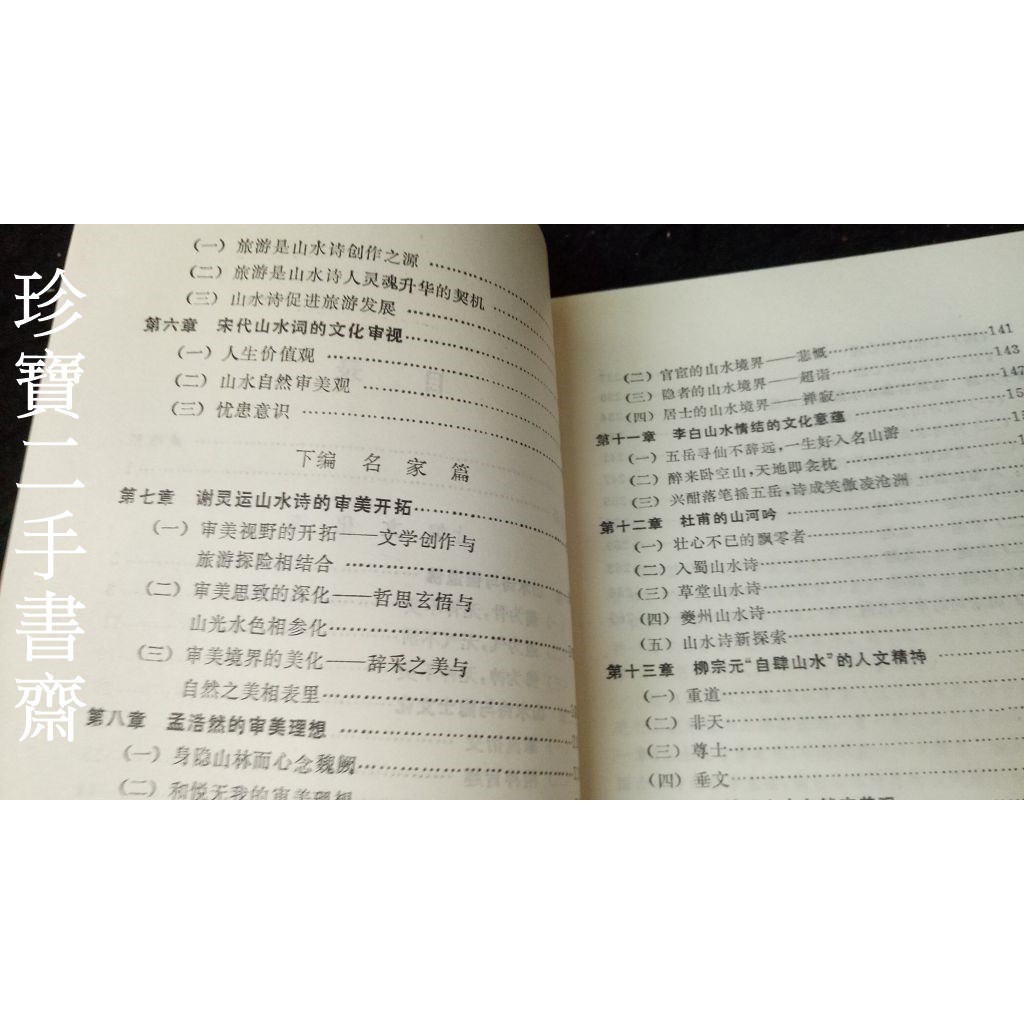 珍寶二手書齋
(一) 旅游是山水诗创作之源
(二) 旅游是山水诗人灵魂升华的契机
(三) 山水诗促进旅游发展
第六章 宋代山水词的文化审视
(一) 人生价值观
(二) 山水自然审美观
(三) 忧患意识
下编 名家篇
第七章 谢灵运山水诗的审美开拓
(一) 审美视野的开拓——文学创作与
旅游探险相结合
(二) 审美思致的深化——哲思玄悟与
山光水色相参化
(三) 审美境界的美化——辞采之美与
自然之美相表里
第八章 孟浩然的审美理想
(一) 身隐山林而心念魏阙
(二) 和悦无我的审美理想
(二) 官宦的山水境界——悲慨 141
(三) 隐者的山水境界——超诣 143
(四) 居士的山水境界——禅寂 147
第十一章 李白山水情结的文化意蕴
(一) 五岳寻仙不辞远，一生好入名山游
(二) 醉来卧空山，天地即衾枕
(三) 兴酣落笔摇五岳，诗成笑傲凌沧洲
第十二章 杜甫的山河吟
(一) 壮心不已的飘零者
(二) 入蜀山水诗
(三) 草堂山水诗
(四) 夔州山水诗
(五) 山水诗新探索
第十三章 柳宗元“自肆山水”的人文精神
(一) 重道
(二) 非天
(三) 尊士
(四) 垂文